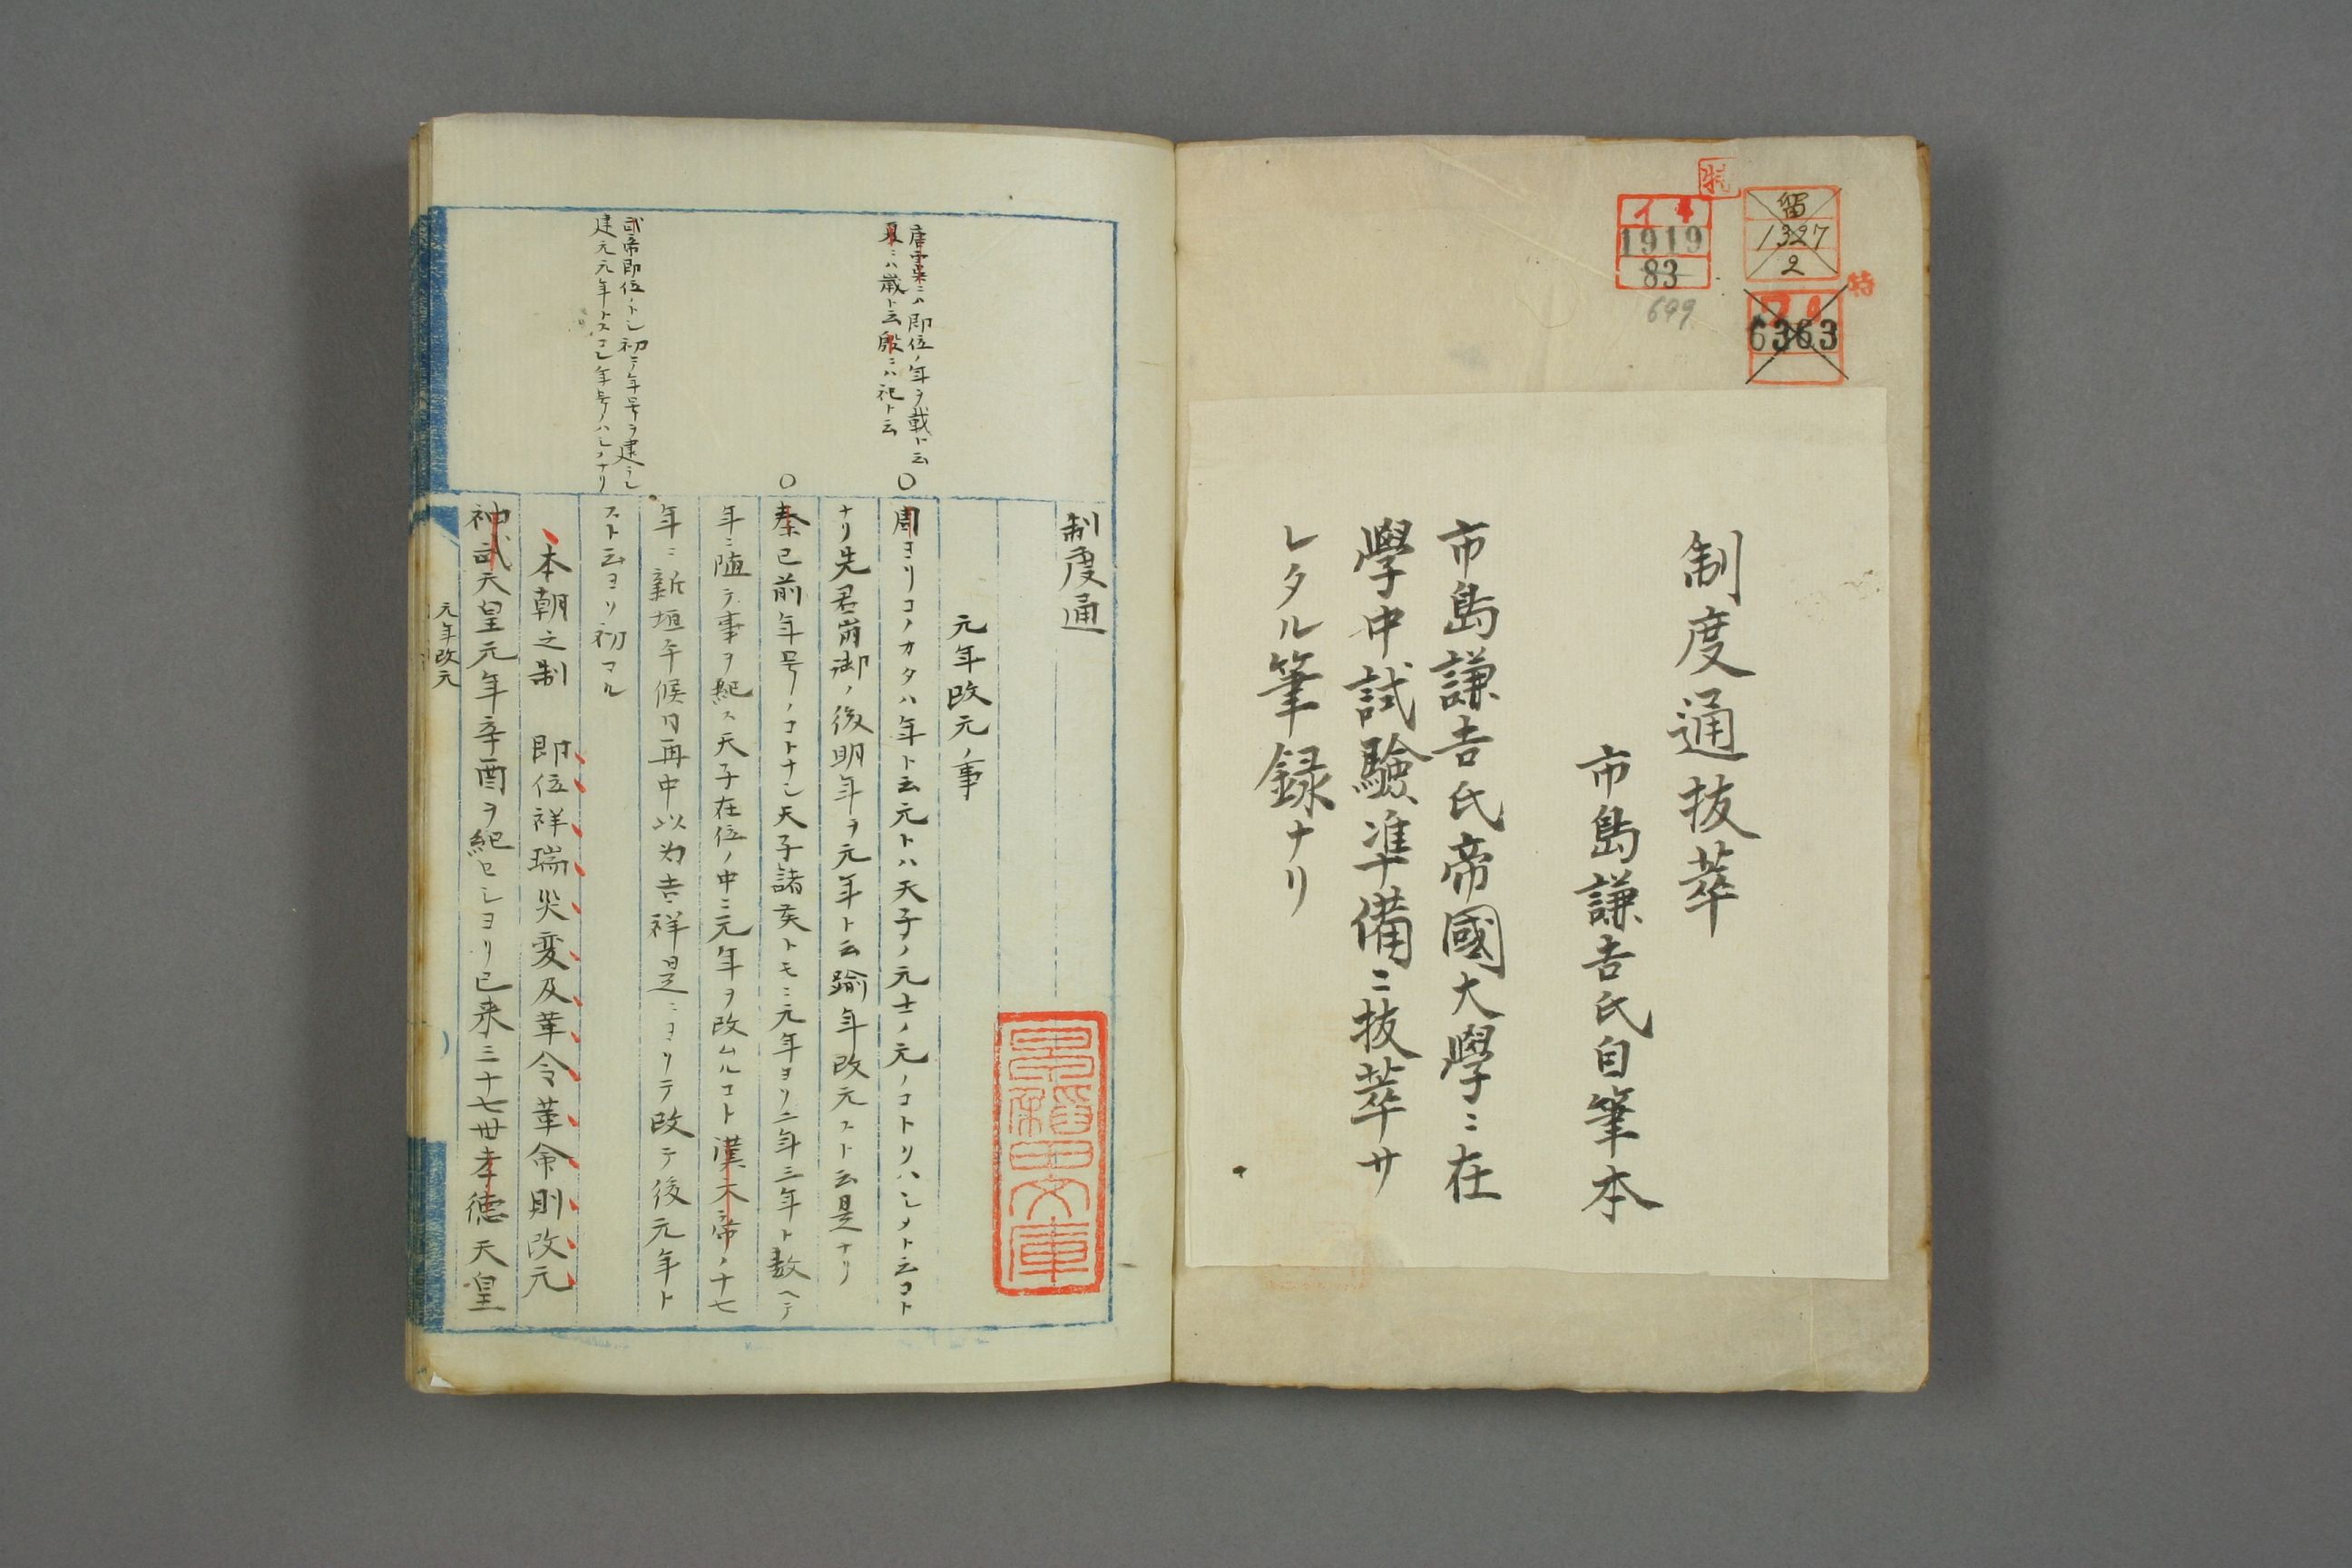 特
イ 4
1919
83
699
留
1327
2
特
6363
制度通抜萃
市島謙吉氏自筆本
市島謙吉氏帝國大學ニ在
學中試驗準備ニ抜萃サ
レタル筆録ナリ
制度通
元年改元ノ事
唐虞ニハ即位ノ年ヲ載ト云
夏ニハ歳ト云殷ニハ祀ト云
○周ヨリコノカタハ年ト云元トハ天子ノ元士ノ元ノコトリハシメト云コト
ナリ先君崩御ノ後明年ヲ元年ト云踰年改元スト云是ナリ
○秦已前年号ノコトナシ天子諸侯トモニ元年ヨリ二年三年ト数ヘテ
年ニ随テ事ヲ紀ス天子在位ノ中ニ元年ヲ改ムルコト漢文帝ノ十七
年ニ新垣平候日再中以为吉祥是ニヨリテ改テ後元年ト
武帝即位ノトシ初テ年号ヲ建テシ
建元元年トスコレ年号ノハシメナリ
スト云ヨリ初マル
本朝之制 即位祥瑞災変及革令革命則改元
神武天皇元年辛酉ヲ紀セシヨリ已来三十七世孝德天皇
元年改元